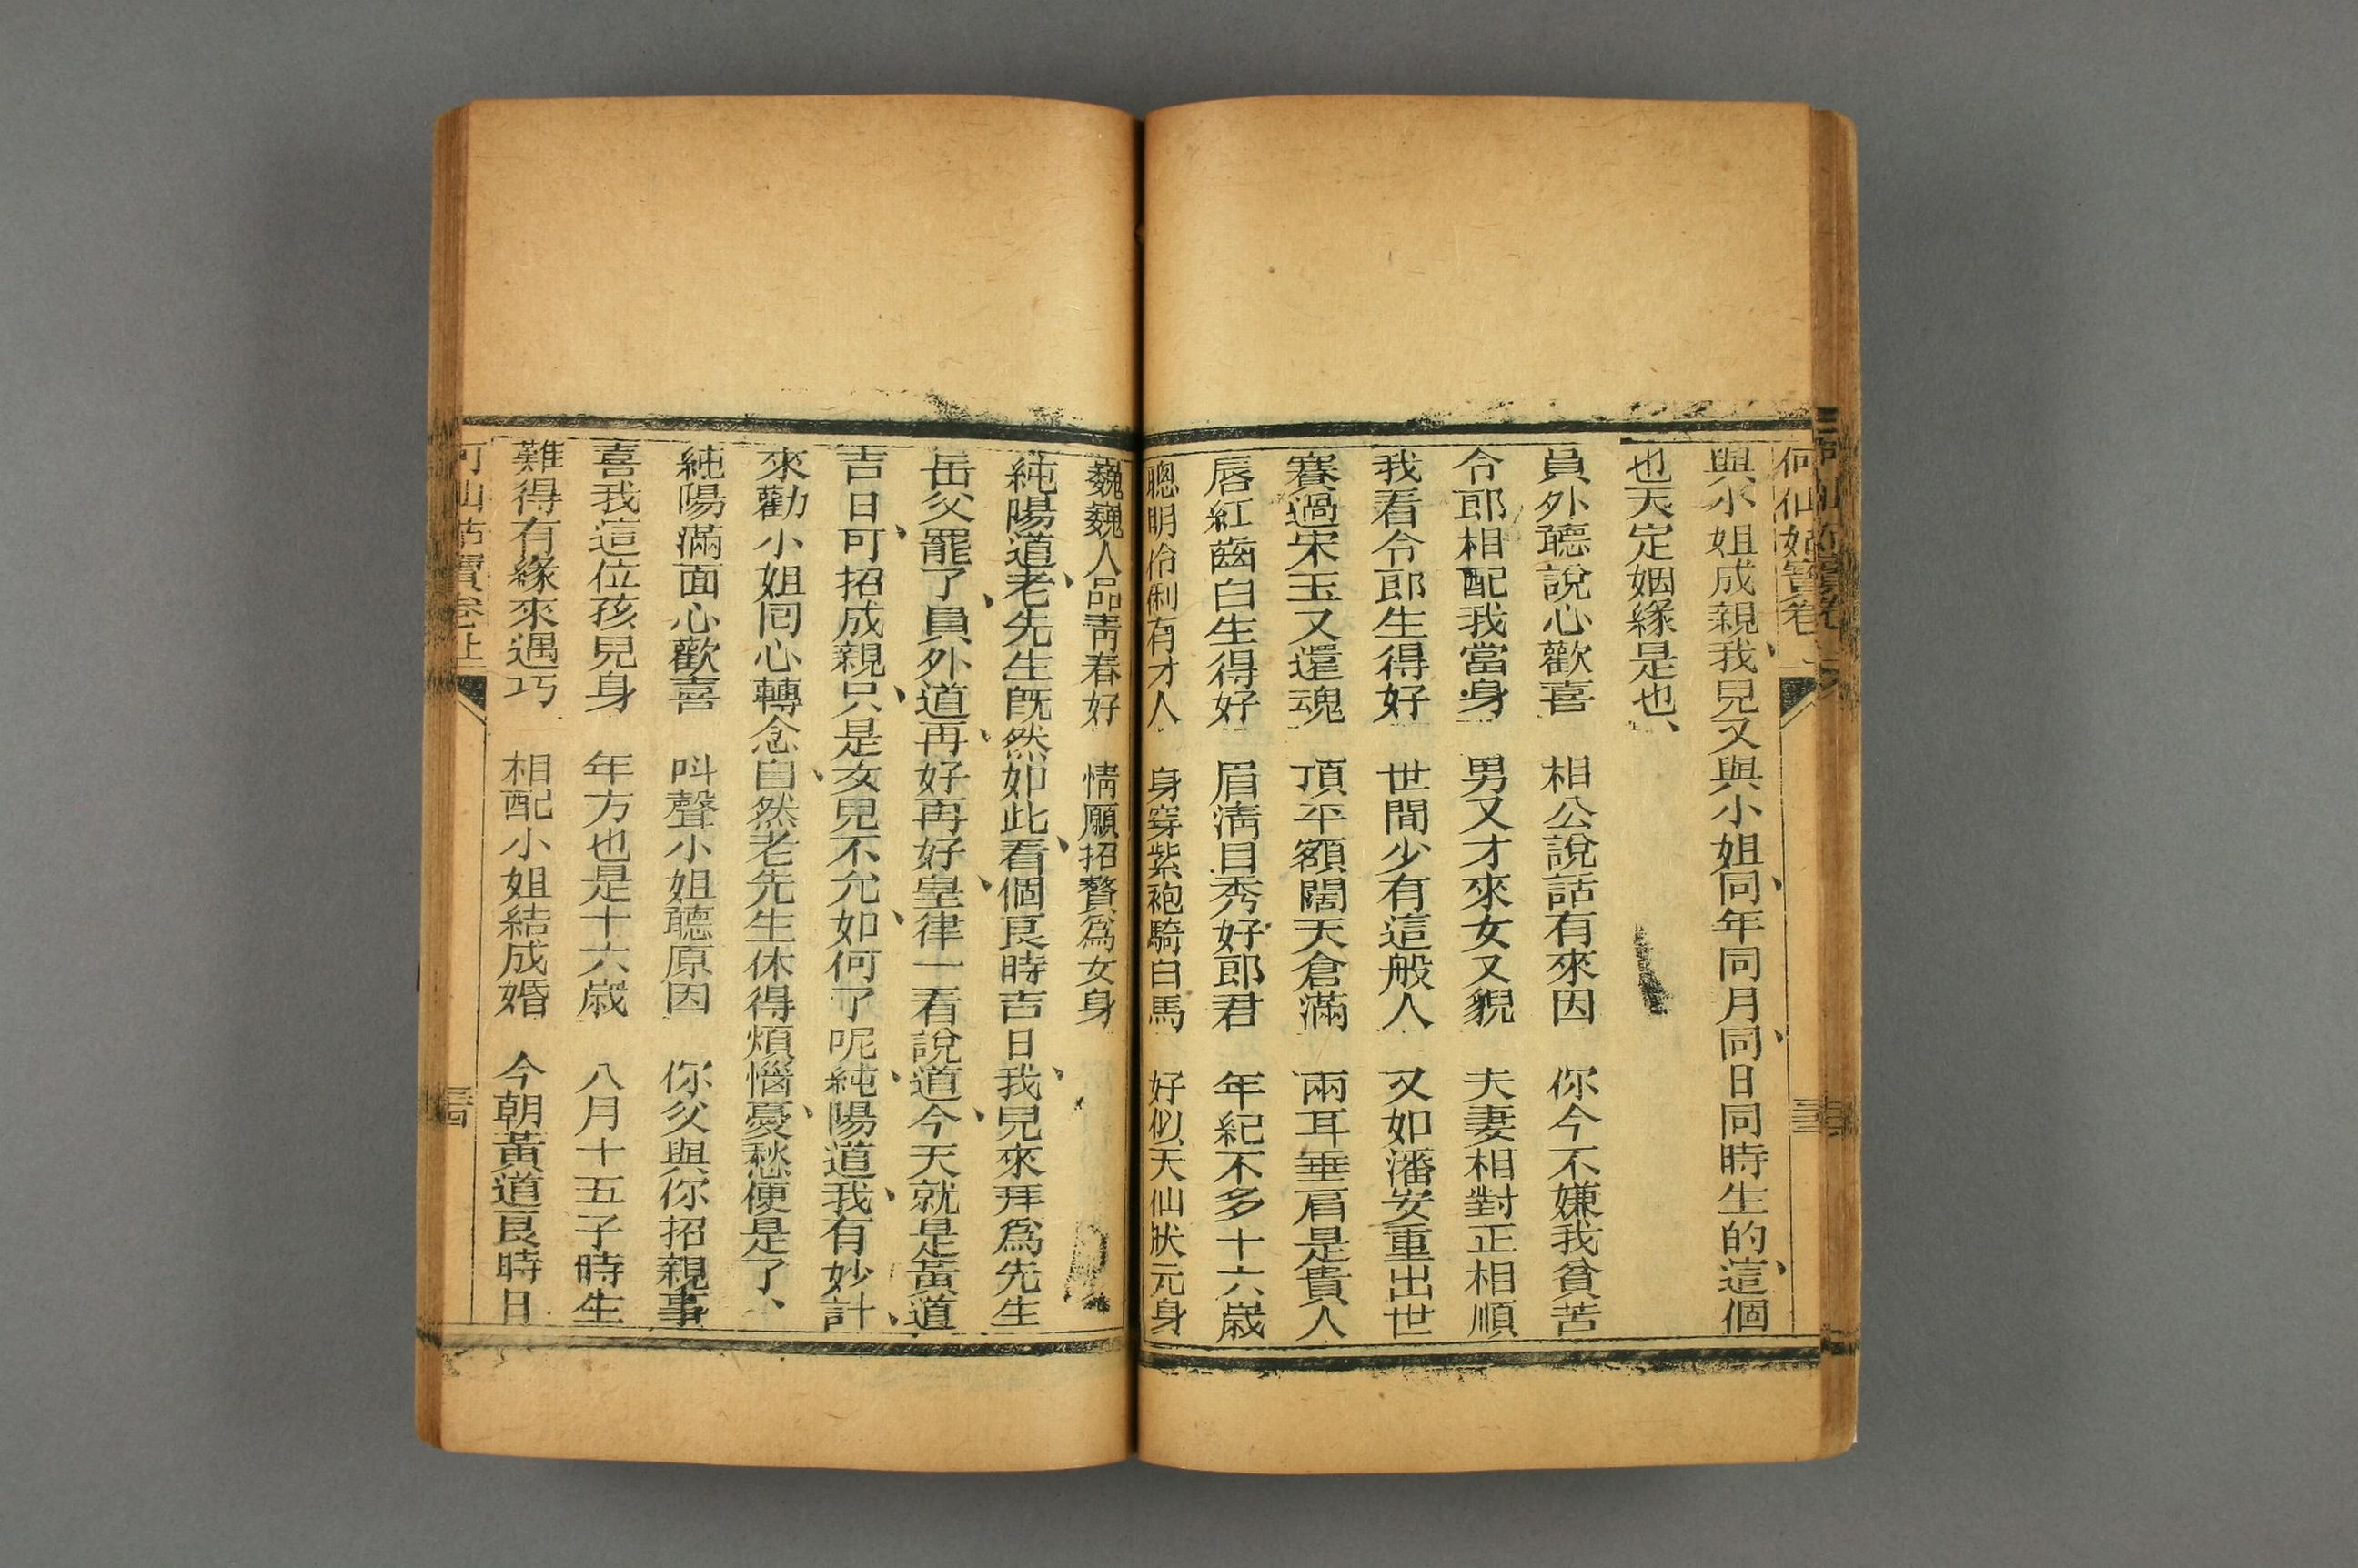 何仙姑寶卷
與小姐成親、我兒又與小姐、同年同月、同日同時生的、這個
也天定姻緣是也、
員外聽說心歡喜 相公說話有來因 你今不嫌我貧苦
令郎相配我當身 男又才來女又貌 夫妻相對正相順
我看令郎生得好 世間少有這般人 又如潘安重出世
賽過宋玉又還魂 頂平額闊天倉滿 兩耳垂肩是貴人
唇紅齒白生得好 眉淸目秀好郎君 年紀不多十六歲
聰明伶俐有才人 身穿紫袍騎白馬 好似天仙狀元身
巍巍人品靑春好 情願招贅爲女身
純陽道、老先生旣然如此、看個良時吉日、我兒來拜爲先生
岳父罷了、員外道、再好再好、皇律一看說道、今天就是黃道
吉日、可招成親、只是女兒不允、如何了呢、純陽道、我有妙計、
來勸小姐囘心轉念、自然老先生休得煩惱、憂愁便是了、
純陽滿面心歡喜 叫聲小姐聽原因 你父與你招親事
喜我這位孩兒身 年方也是十六歲 八月十五子時生
難得有緣來遇巧 相配小姐結成婚 今朝黃道良時日
何仙姑寶卷上